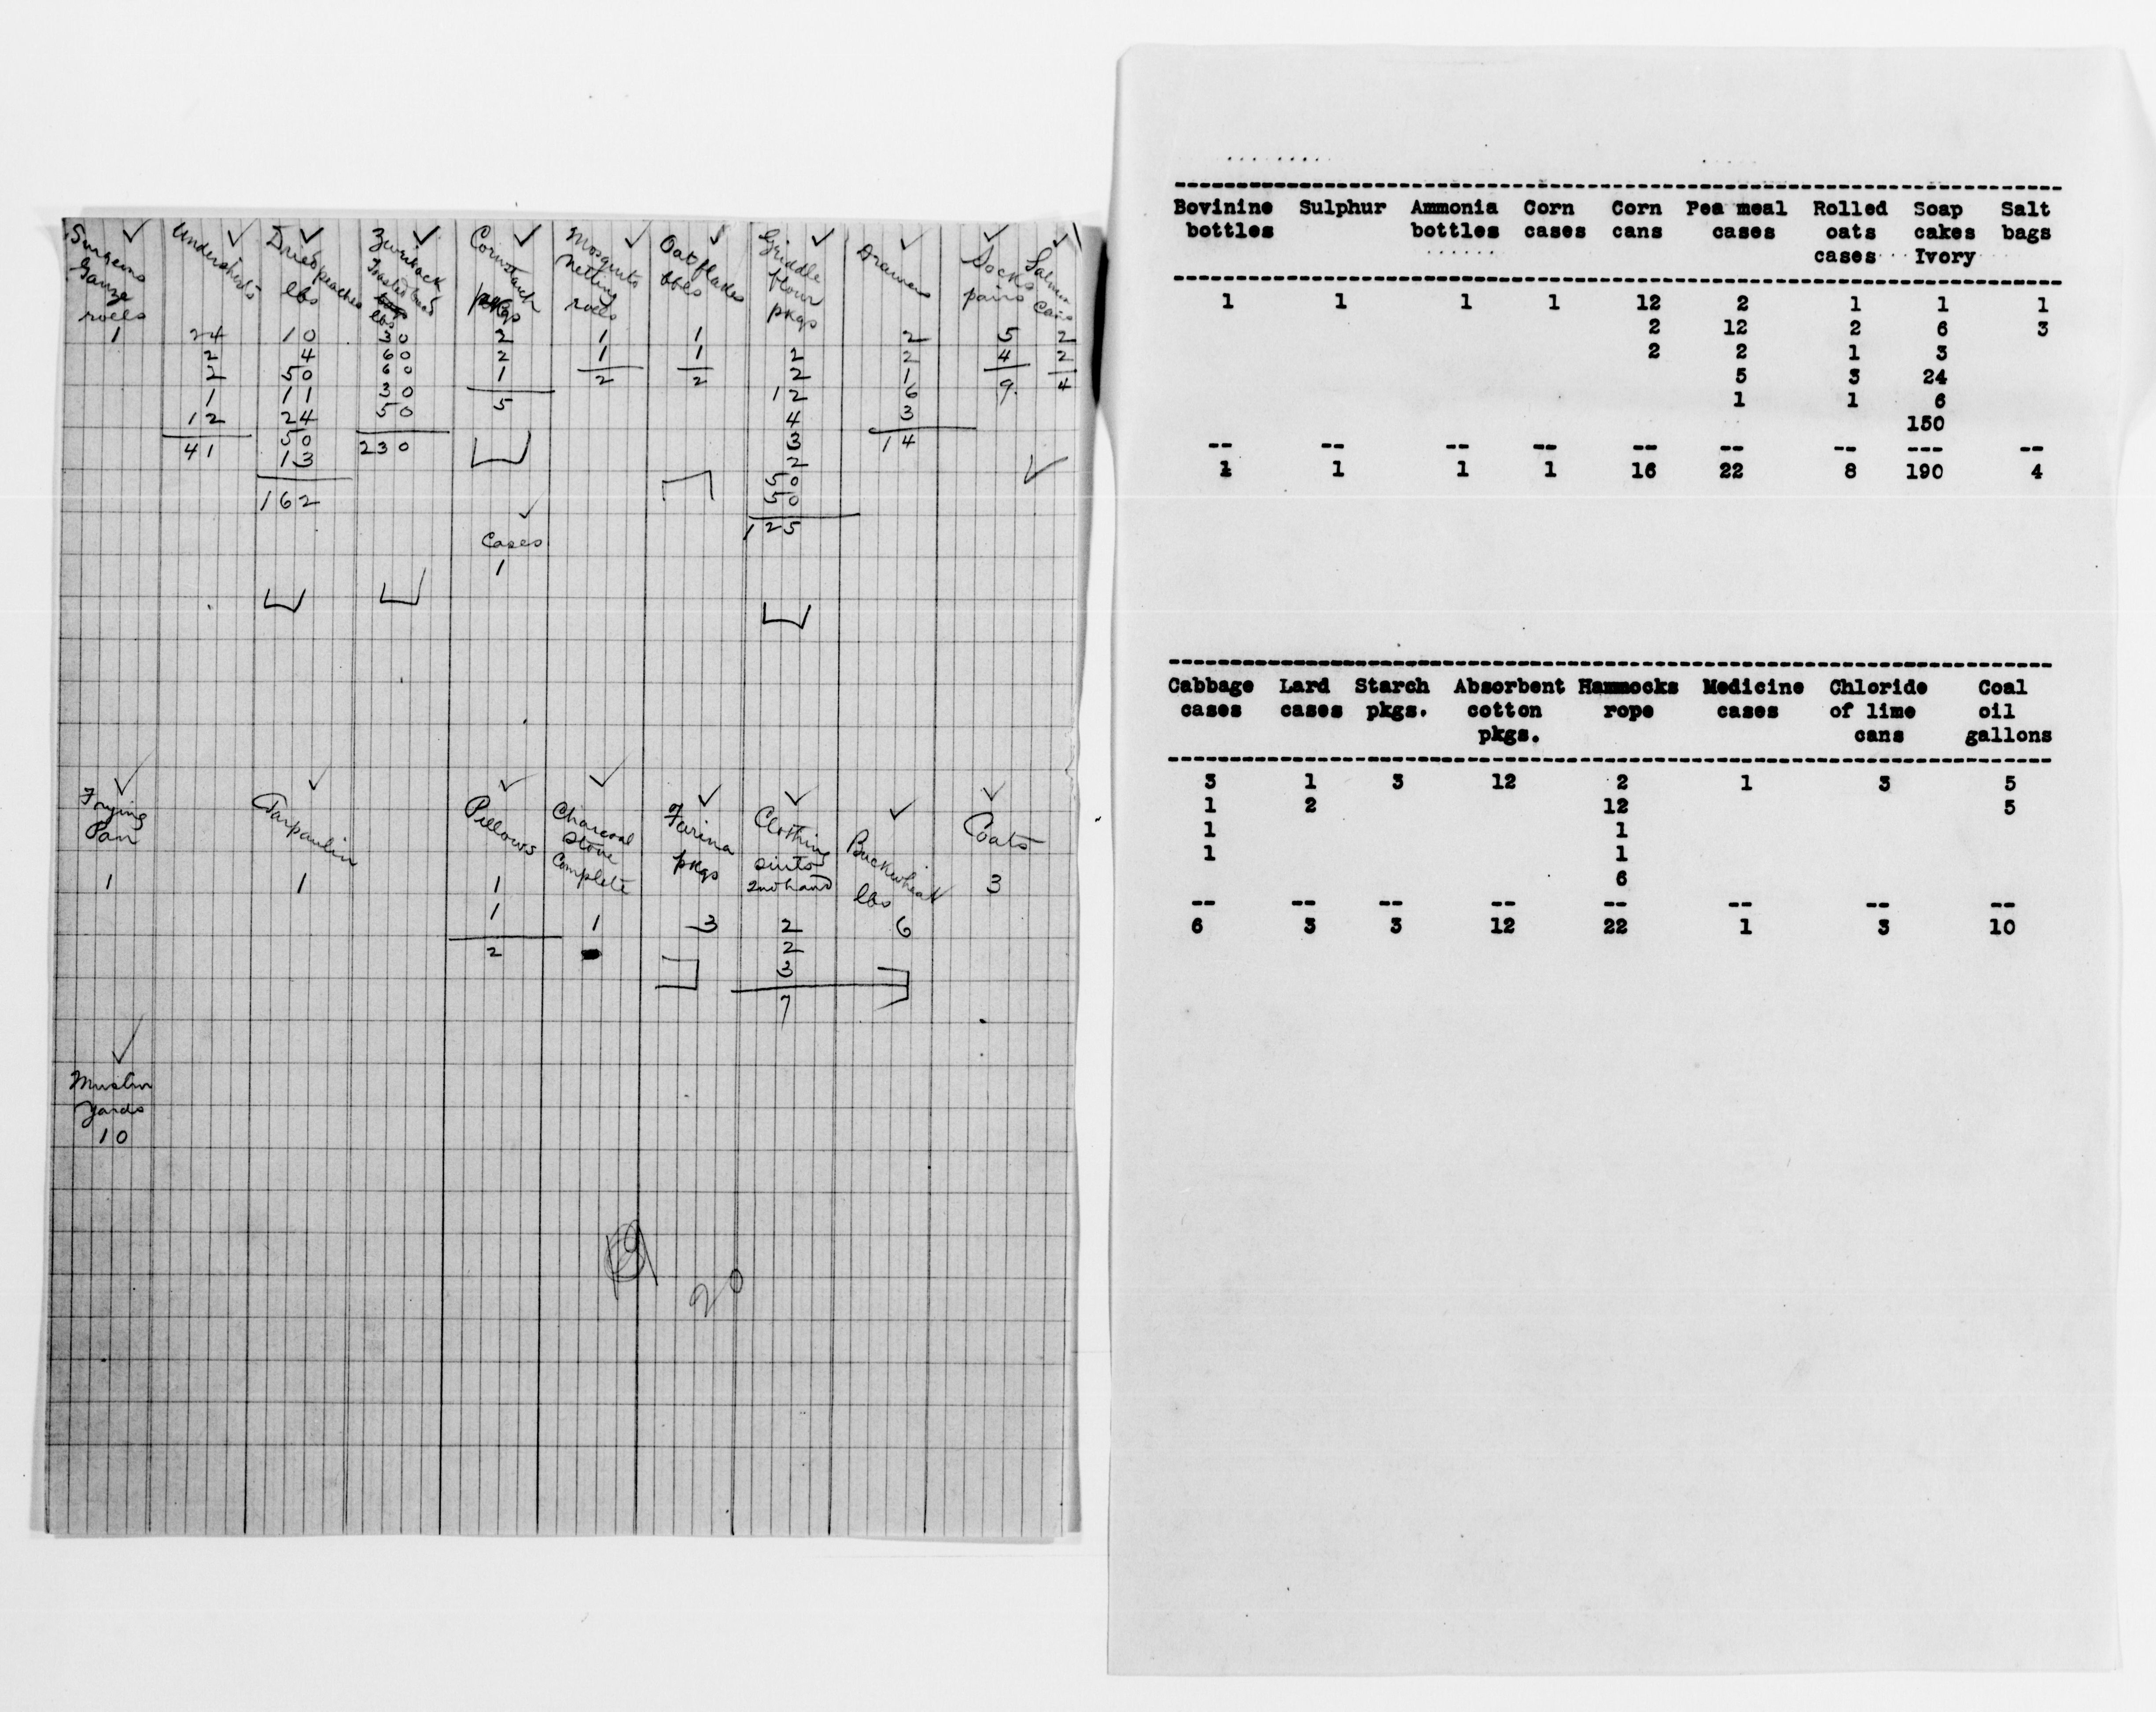 Surgeons Undershirts Dried peaches Zwieback Cornstarch Mosquito Oat flakes Griddle Drawers Socks Salmon
Gauze lbs Toasted bread pkgs Netting bbls flour pairs cans
rolls lbs rolls pkgs
1 24 10 30 2 1 1 2 5 2
2 4 60 2 1 1 2 2 4 2
2 50 60 1 2 2 2 1 9 4
1 11 30 5 12 6
12 24 50 4 3
41 50 230 3 14
13 2
162 50
50
Cases 125
1
Frying Tarpaulin Pillows Charcoal Farina Clothing Buckwheat Coats
Pan stove pkgs suits lbs
complete 2nd hand
1 1 1 1 3 2 6 3
1 2
2 3
7
Muslin
yards
10
19
20
Bovinine Sulphur Ammonia Corn Corn Pea meal Rolled Soap Salt
bottles bottles cases cans cases oats cakes bags
cases Ivory
1 1 1 1 12 2 1 1 1
2 12 2 6 3
2 2 1 3
5 3 24
1 1 6
150
-- -- -- -- -- -- -- --- --
1 1 1 1 16 22 8 190 4
Cabbage Lard Starch Absorbent Hammocks Medicine Chloride Coal
cases cases pkgs. cotton rope cases of lime oil
pkgs. cans gallons
3 1 3 12 2 1 3 5
1 2 12 5
1 1
1 1
6
-- -- -- -- -- -- -- --
6 3 3 12 22 1 3 10